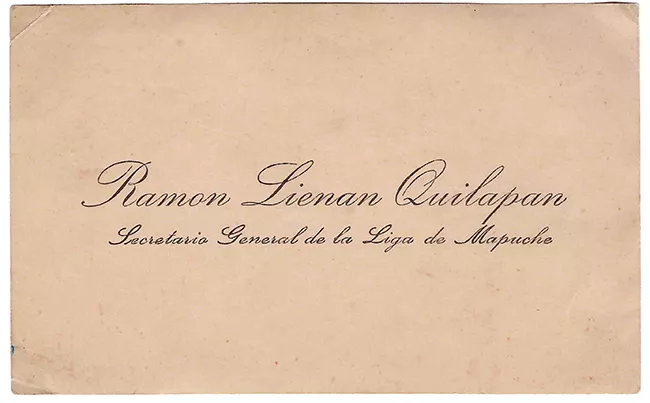 Ramon Lienan Quilapan
Secretario General de la Liga de Mapuche